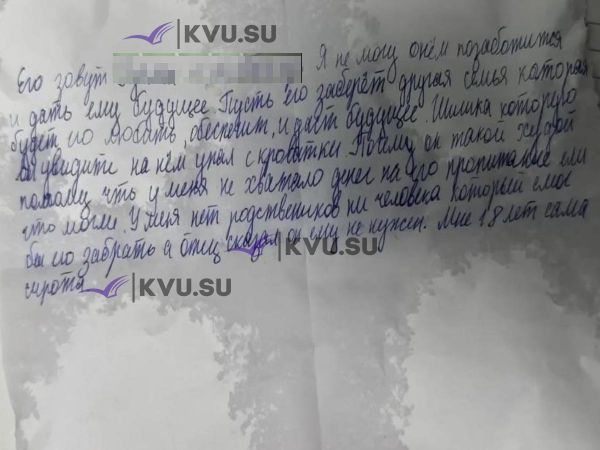 KVU.SU
Его зовут Я не могу о нём позаботится
и дать ему будущее Пусть его заберёт другая семья которая
будет его любить, обеспечит, и даст будущее. Шишка которую
вы увидите на нём упал с кроватки. Почему он такой худой
потому что у меня не хватало денег на его пропитание ели
что могли. У меня нет родствеников ни человека который смог
бы его забрать а отец сказал он ему не нужен. Мне 18 лет сама
сирота
KVU.SU
KVU.SU